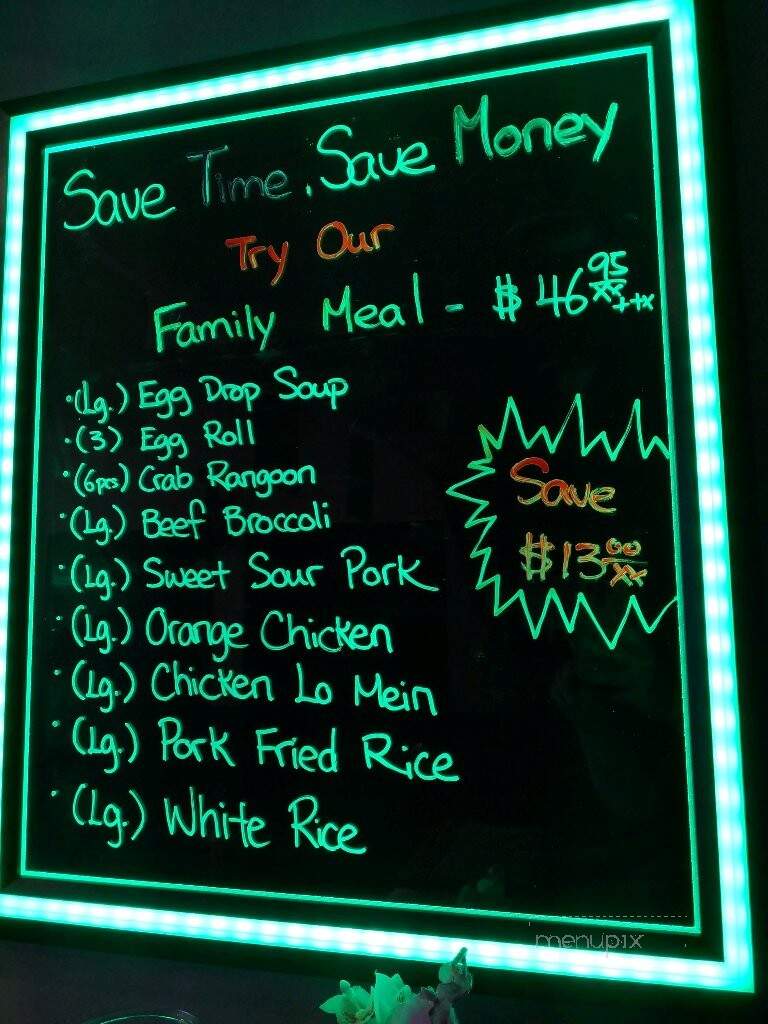 Save Time, Save Money
Try Our
Family Meal - $46 95 xx ++x
•(Lg.) Egg Drop Soup
•(3) Egg Roll
•(6pcs) Crab Rangoon
•(Lg.) Beef Broccoli
•(Lg.) Sweet Sour Pork
•(Lg.) Orange Chicken
•(Lg.) Chicken Lo Mein
•(Lg.) Pork Fried Rice
•(Lg.) White Rice
Save
$13 00 xx
menupix